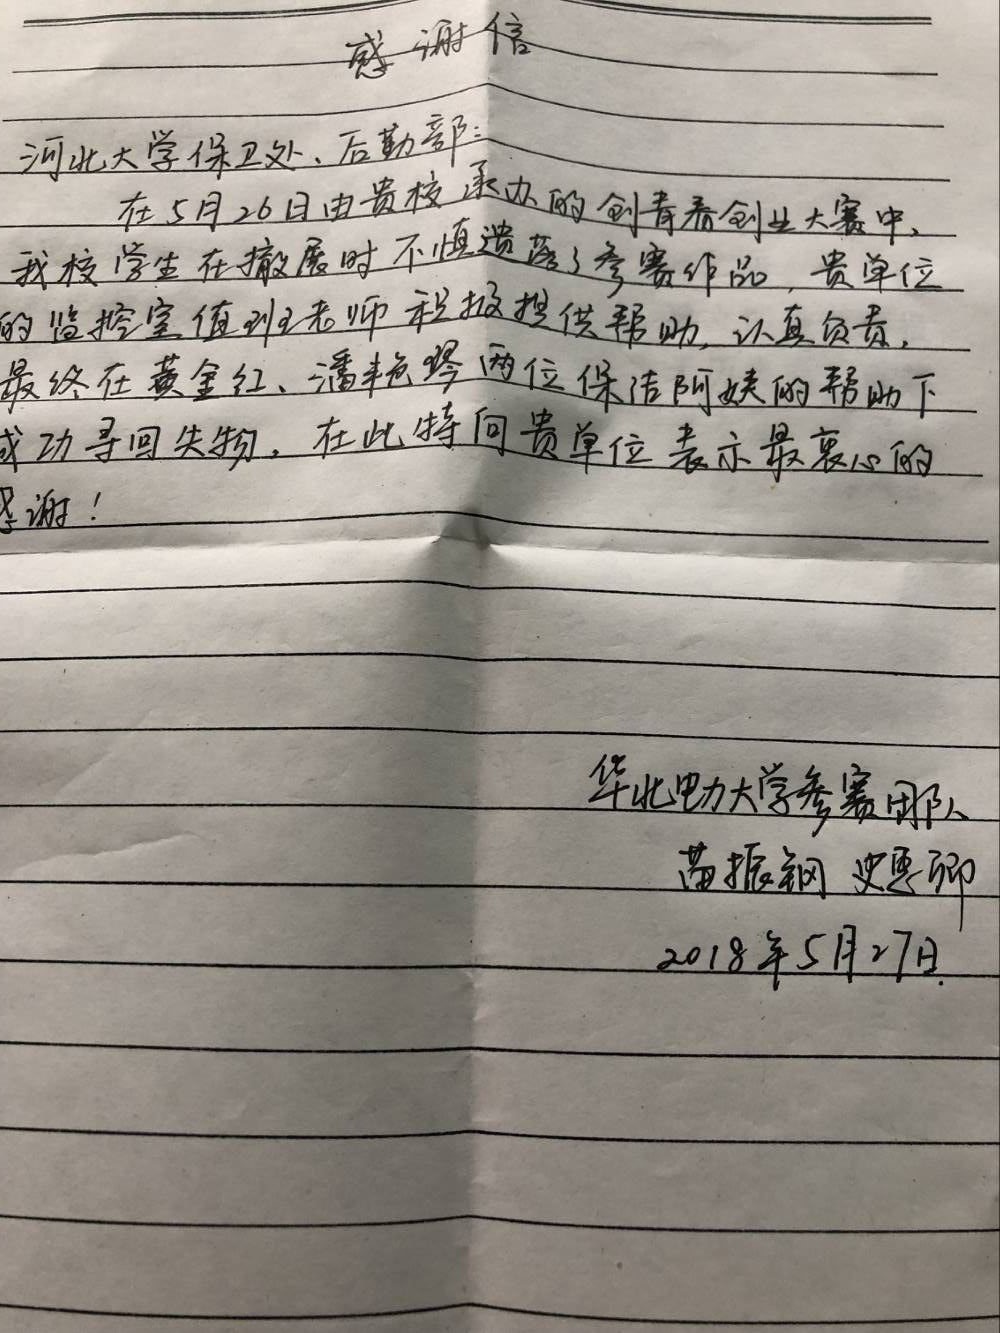 感谢信
河北大学保卫处、后勤部:
在5月26日由贵校承办的创青春创业大赛中,
我校学生在撤展时不慎遗落了参赛作品,贵单位
的监控室值班老师积极提供帮助,认真负责,
最终在黄金红、潘艳琴两位保洁阿姨的帮助下
成功寻回失物。在此特向贵单位表示最衷心的
感谢!
华北电力大学参赛团队
苗振钢 史惠卿
2018年5月27日.